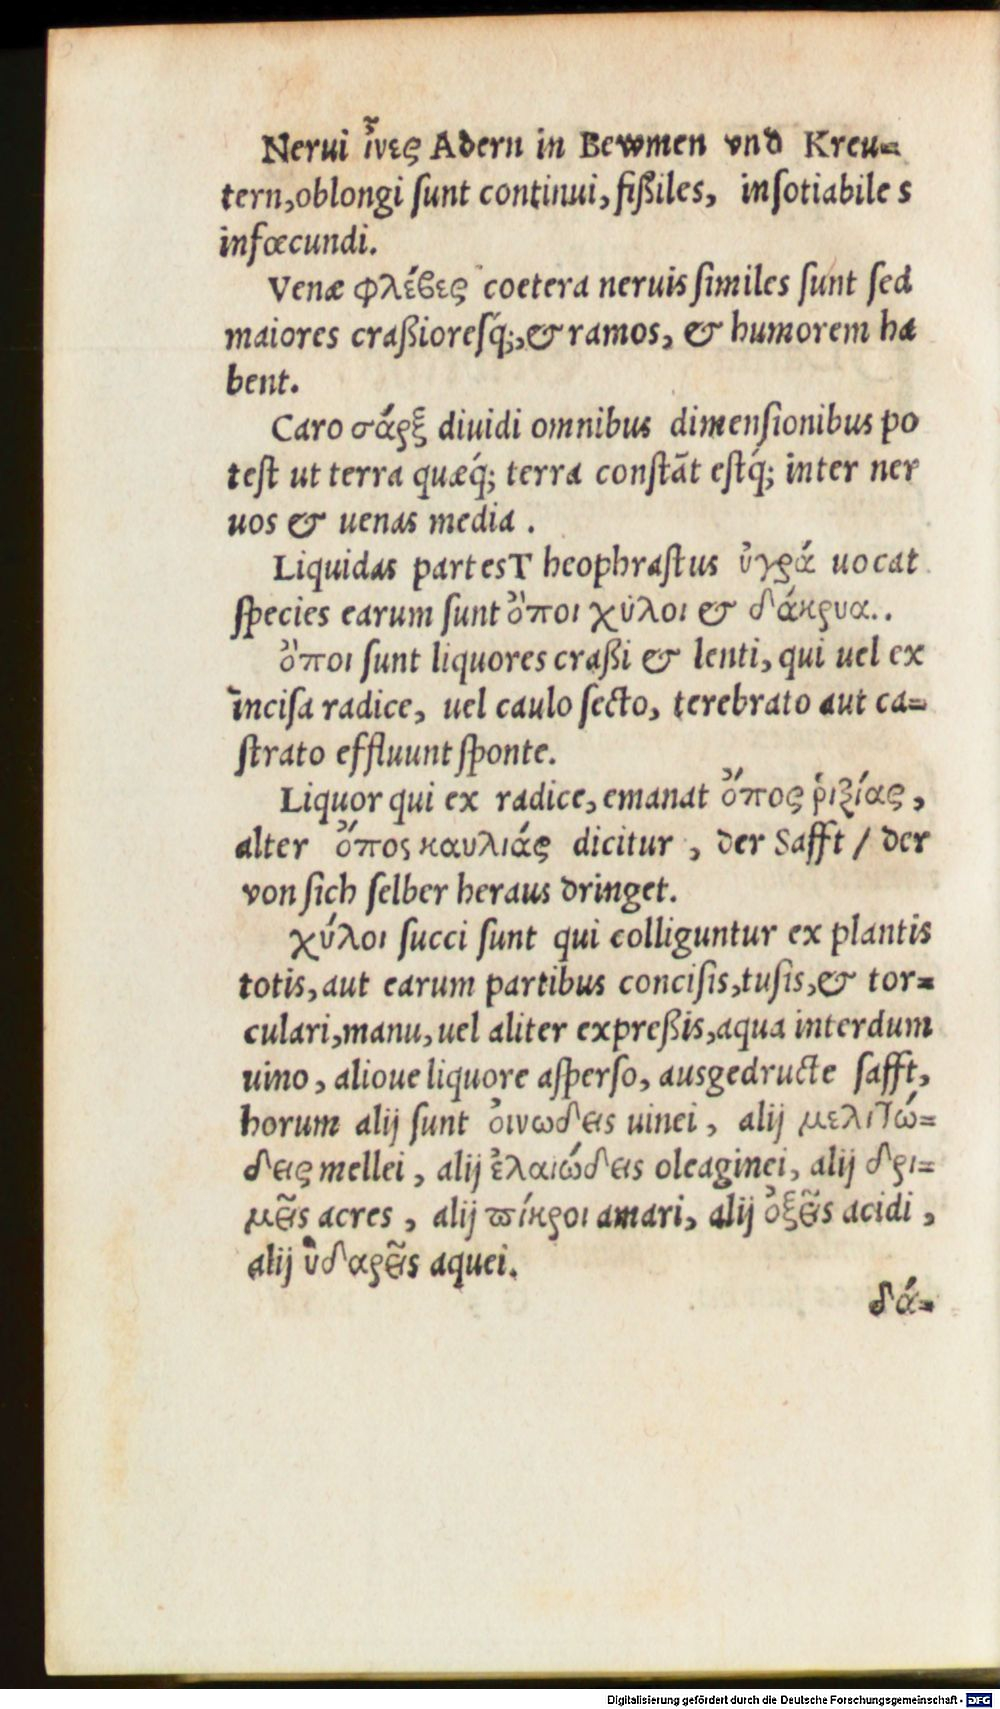 Nerui ἶνες Adern in Bewmen vnd Kreu=
tern,oblongi ſunt continui, fißiles, inſotiabile s
infœcundi.
Venæ φλέβες coetera neruis ſimiles ſunt ſed
maiores craßioreſq́;,& ramos, & humorem ha
bent.
Caro σάρξ diuidi omnibus dimenſionibus po
teſt ut terra quæq́; terra conſtãt eſtq́; inter ner
uos & uenas media .
Liquidas partesT heophraſtus ὑγρά uocat
ſpecies earum ſunt ὄποι χύλοι & δάκρυα..
ὄποι ſunt liquores craßi & lenti, qui uel ex
inciſa radice, uel caulo ſecto, terebrato aut ca=
ſtrato effluunt ſponte.
Liquor qui ex radice, emanat ὄπος ῥιξίας ,
alter ὄπος καυλιάς dicitur , der Safft / der
von ſich ſelber heraus dringet.
χύλοι ſucci ſunt qui colliguntur ex plantis
totis, aut earum partibus conciſis,tuſis,& tor=
culari,manu, uel aliter expreßis,aqua interdum
uino , alioue liquore aſperſo, ausgedruckte ſafft,
horum alij ſunt ὀινωδεις uinei , alij μελιτώ=
δεις mellei , alij ἐλαιώδεις oleaginei, alij δρι=
μεῖς acres , alij πίκροι amari, alij ὀξεῖς acidi ,
alij ὑδαρεῖς aquei.
δά=
Digitalisierung gefördert durch die Deutsche Forschungsgemeinschaft - DFG